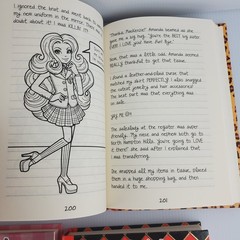 I ignored the brat and went back to
my new uniform in the mirror.
doubt about it! I was KILLIN' IT!
200
"Thanks, MacKenzie!" Amanda
me a big hug. "You're the BEST big sister
EVER! I LOVE you! Bye!"
how that was a little
REALLY thankful to get that
I found a leather-and-lace purse that
matched my skirt PERFECTLY! I also snagged
the cutest jewelry and two accessories!
The best part was that everything was
on sale.
YAY, ME!!
The salesclerk at the register was over
friendly. My niece and nephew both go to
North Hampton Hills. You're going to LOVE
it there!" she said after I explained that
I was transferring.
She wrapped all my items in tissue, placed
them in a huge shopping bag, and then
handed it to me.
201